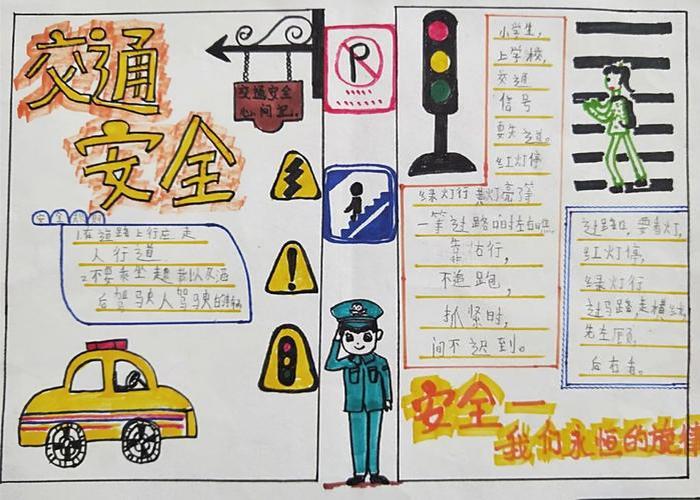 交通
安全
交通安全
心间记.
安全规则
1.在道路上行应走
人行道
2.不要乘坐超
后驾驶人驾驶的车辆
P
小学生,
上学校,
交通
信号
要先知道。
红灯停
绿灯行 黄灯亮了等
一等过路口左右瞧
靠右行,
不追跑,
抓紧时,
间不迟到。
过路口,要看灯,
红灯停,
绿灯行
过马路走横
先左顾,
后右看。
安全一
我们永恒的旋律